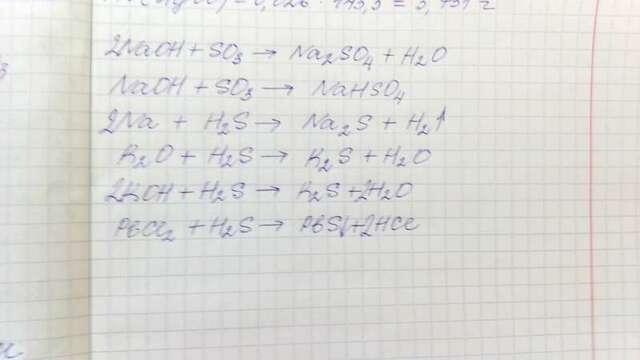 2NaOH + SO₃ → Na₂SO₄ + H₂O
NaOH + SO₃ → NaHSO₄
2Na + H₂S → Na₂S + H₂↑
K₂O + H₂S → K₂S + H₂O
2KOH + H₂S → K₂S + 2H₂O
PbCl₂ + H₂S → PbS↓ + 2HCl